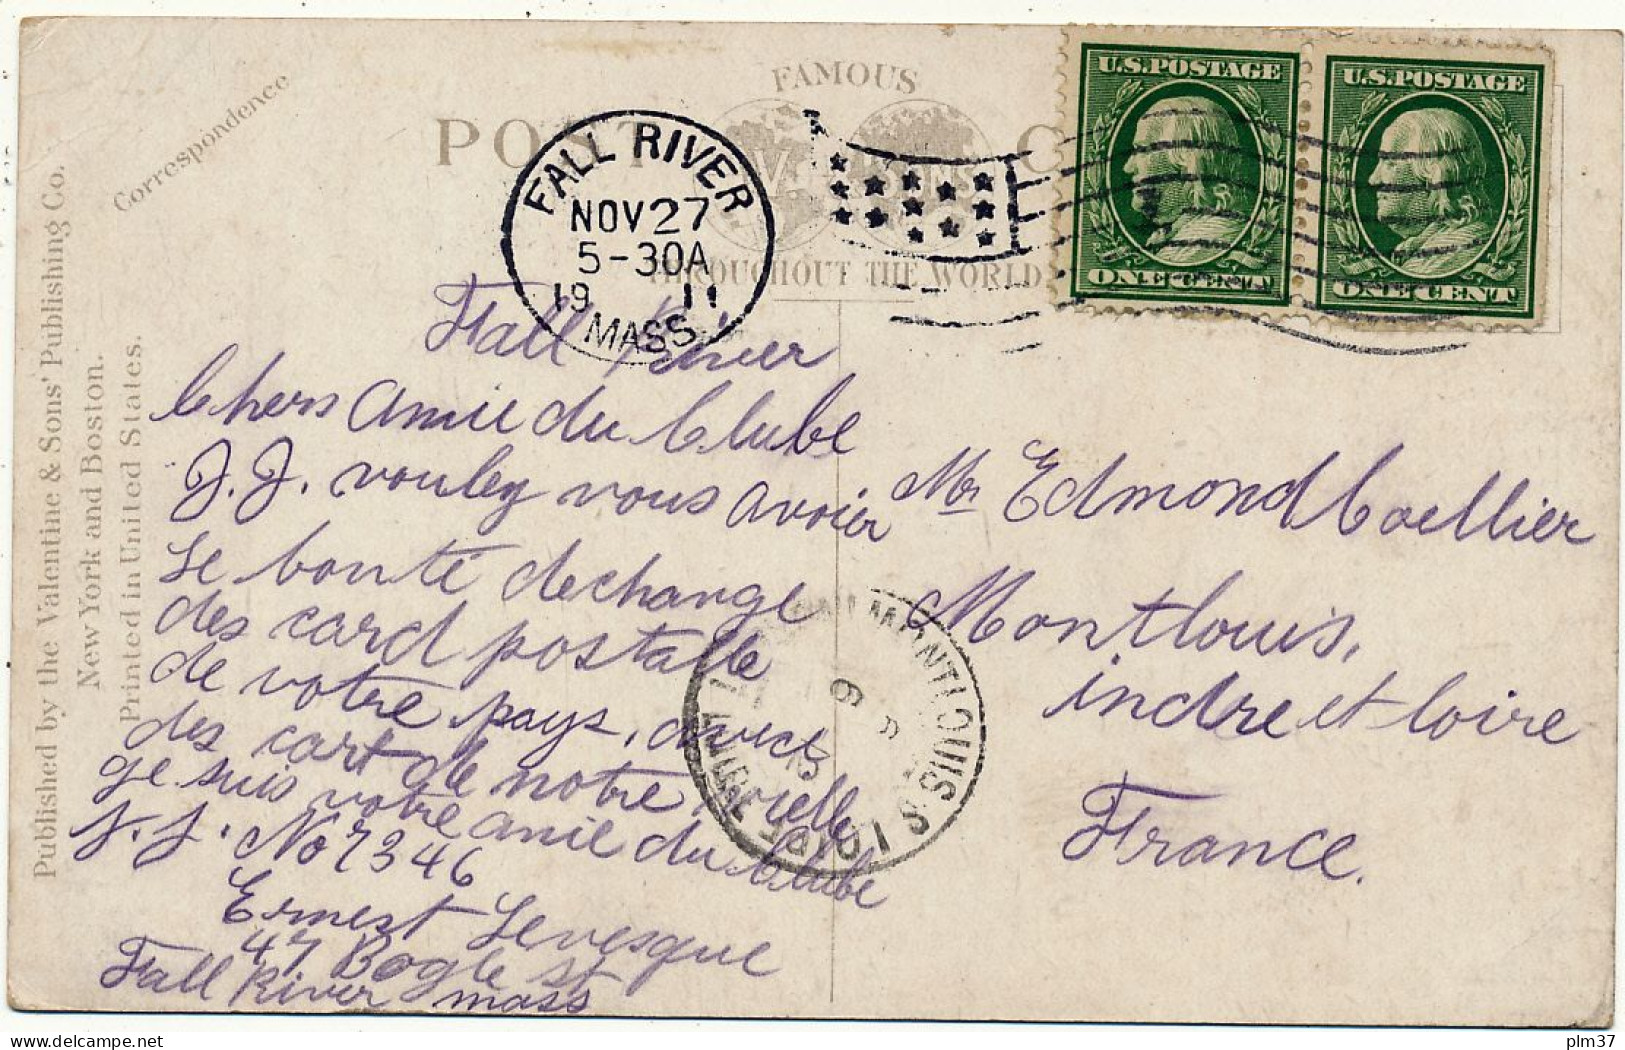 Correspondence
POST C
FAMOUS
THROUGHOUT THE WORLD
Published by the Valentine & Sons' Publishing Co.
New York and Boston.
Printed in United States.
FALL RIVER
NOV 27
5-30A
19 11
MASS.
U.S. POSTAGE
ONE CENT
U.S. POSTAGE
ONE CENT
Fall River
Chers Amie du Clube
J.J. vouley vous avoier
le bonté dechange
des card postalle
de votre pays, avect
des cart de notre vielle
je suis votre amie du Clube
J.J. No 7346
Ernest Levesque
47 Bogle st
Fall River mass
Mr Edmond Coellier
Montlouis,
indre et Loire
France.
MONTLOUIS S LOIRE
plm37